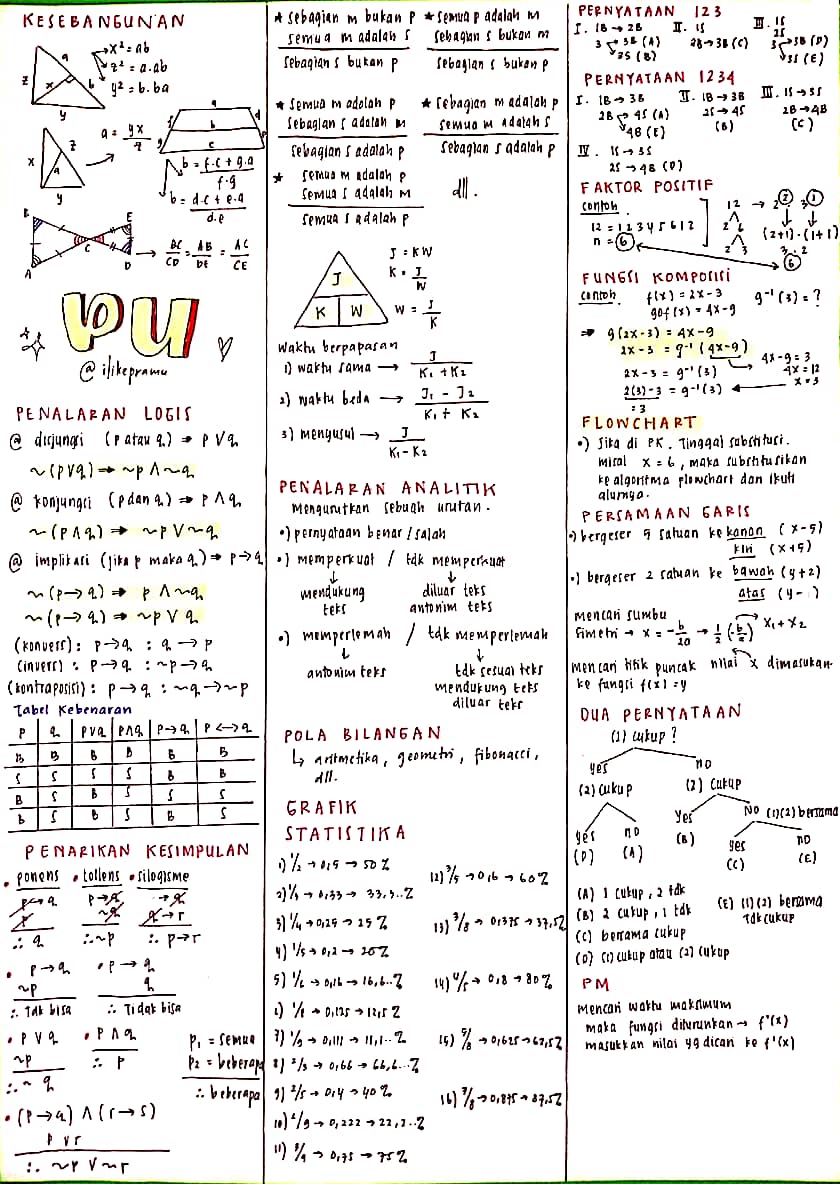 KESEBANGUNAN
x² = ab
z² = a.ab
y² = b.ba
z
a
x
b
y
x
z
a
y
a = yx
z
a
f
d
b
g
e
c
b = f.c + g.a
f.g
b = d.c + e.a
d.e
B
E
C
A
D
BC = AB = AC
CD DE CE
PU
@ilikepramu
PENALARAN LOGIS
@ disjungsi (p atau q) ⇒ p ∨ q
~(p∨q) ⇒ ~p ∧ ~q
@ konjungsi (p dan q) ⇒ p ∧ q
~(p∧q) ⇒ ~p ∨ ~q
@ implikasi (jika p maka q) ⇒ p→q
~(p→q) ⇒ p ∧ ~q
~(p→q) ⇒ ~p ∨ q
(konvers) : p→q : q → p
(invers) : p→q : ~p→q
(kontraposisi) : p→q : ~q→~p
Tabel Kebenaran
P q p∨q p∧q p→q p↔q
B B B B B B
S S S S B B
B S B S S S
B S B S B S
PENARIKAN KESIMPULAN
• ponens • tollens • silogisme
p→q p→q →q
p ~q q→r
∴ q ∴ ~p ∴ p→r
• p→q • p→q
~p q
∴ Tdk bisa ∴ Tidak bisa
• p ∨ q • p ∧ q
~p ∴ p
∴ ~ q
p₁ = semua
p₂ = beberapa
∴ beberapa
• (p→q) ∧ (r→s)
p ∨ r
∴ ~p ∨ ~r
★ sebagian m bukan p
semua m adalah s
sebagian s bukan p
★ semua p adalah m
sebagian s bukan m
sebagian s bukan p
★ semua m adalah p
sebagian s adalah m
sebagian s adalah p
★ sebagian m adalah p
semua m adalah s
sebagian s adalah p
★ semua m adalah p
semua s adalah m
semua s adalah p
dll.
J
K W
J = KW
K = J
W
W = J
K
Waktu berpapasan
1) waktu sama → J
K₁ + K₂
2) waktu beda → J₁ - J₂
K₁ + K₂
3) mengusul → J
K₁ - K₂
PENALARAN ANALITIK
Mengurutkan sebuah urutan.
•) pernyataan benar / salah
•) memperkuat / tdk memperkuat
mendukung diluar teks
teks antonim teks
•) memperlemah / tdk memperlemah
antonim teks tdk sesuai teks
mendukung teks
diluar teks
POLA BILANGAN
↳ aritmetika, geometri, fibonacci,
dll.
GRAFIK
STATISTIKA
1) 1/2 → 0,5 → 50 %
2) 1/3 → 0,33 → 33,3..%
3) 1/4 → 0,25 → 25 %
4) 1/5 → 0,2 → 20%
5) 1/6 → 0,16 → 16,6..%
6) 1/8 → 0,125 → 12,5 %
7) 1/9 → 0,111 → 11,1..%
8) 2/3 → 0,66 → 66,6..%
9) 2/5 → 0,4 → 40 %
10) 2/9 → 0,222 → 22,2..%
11) 3/4 → 0,75 → 75%
12) 3/5 → 0,6 → 60%
13) 3/8 → 0,375 → 37,5%
14) 4/5 → 0,8 → 80%
15) 5/8 → 0,625 → 62,5%
16) 7/8 → 0,875 → 87,5%
PERNYATAAN 123
I. 1B → 2B
3 → 3B (A)
2S (B)
II. 1S
2B → 3B (C)
III. 1S
2S
3 → 3B (D)
3S (E)
PERNYATAAN 1234
I. 1B → 3B
2B → 4S (A)
4B (E)
II. 1B → 3B
2S → 4S
(B)
III. 1S → 3S
2B → 4B
(C)
IV. 1S → 3S
2S → 4B (D)
FAKTOR POSITIF
contoh
12 = 1 2 3 4 5 6 12
n = 6
12 → 2² . 3¹
2 6
2 3
(2+1) . (1+1)
3 . 2
6
FUNGSI KOMPOSISI
contoh. f(x) = 2x - 3
gof (x) = 4x - 9
g⁻¹ (3) = ?
⇒ g(2x-3) = 4x - 9
2x - 3 = g⁻¹ (4x-9)
2x - 3 = g⁻¹ (3)
2(3) - 3 = g⁻¹ (3)
= 3
4x - 9 = 3
4x = 12
x = 3
FLOWCHART
•) Jika di PK. Tinggal substitusi.
misal x = 6, maka substitusikan
ke algoritma flowchart dan ikuti
alurnya.
PERSAMAAN GARIS
•) bergeser 5 satuan ke kanan (x-5)
kiri (x+5)
•) bergeser 2 satuan ke bawah (y+2)
atas (y- )
mencari sumbu
simetri → x = -b/2a → 1/2 (-b/a) x₁ + x₂
mencari titik puncak nilai x dimasukan-
ke fungsi f(x) = y
DUA PERNYATAAN
(1) cukup ?
yes no
(2) cukup (2) cukup
yes no Yes No (1)(2) bersama
(D) (A) (B) yes no
(C) (E)
(A) 1 cukup, 2 tdk
(B) 2 cukup, 1 tdk
(C) bersama cukup
(D) (1) cukup atau (2) cukup
(E) (1)(2) bersama
Tdk cukup
PM
Mencari waktu maksimum
maka fungsi diturunkan → f'(x)
masukkan nilai yg dicari ke f'(x)